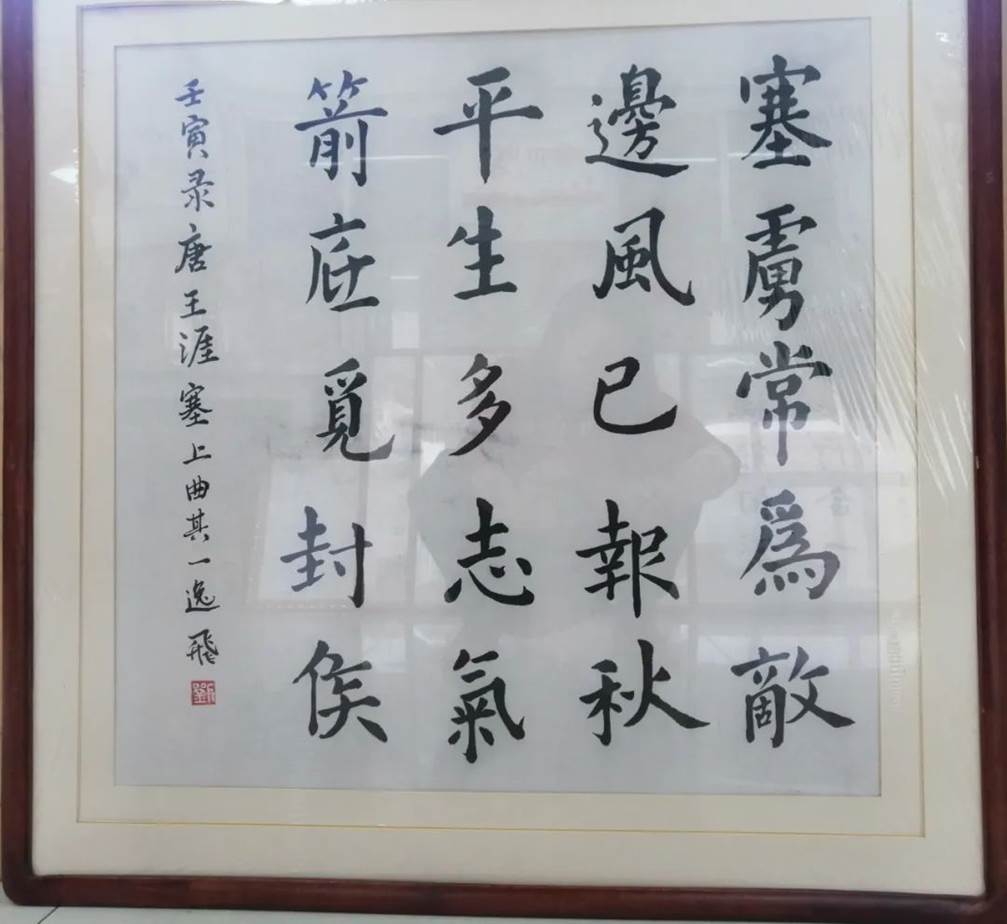 塞虜常爲敵
邊風已報秋
平生多志氣
箭底覓封侯
壬寅录唐王涯塞上曲其一逸飛
劉